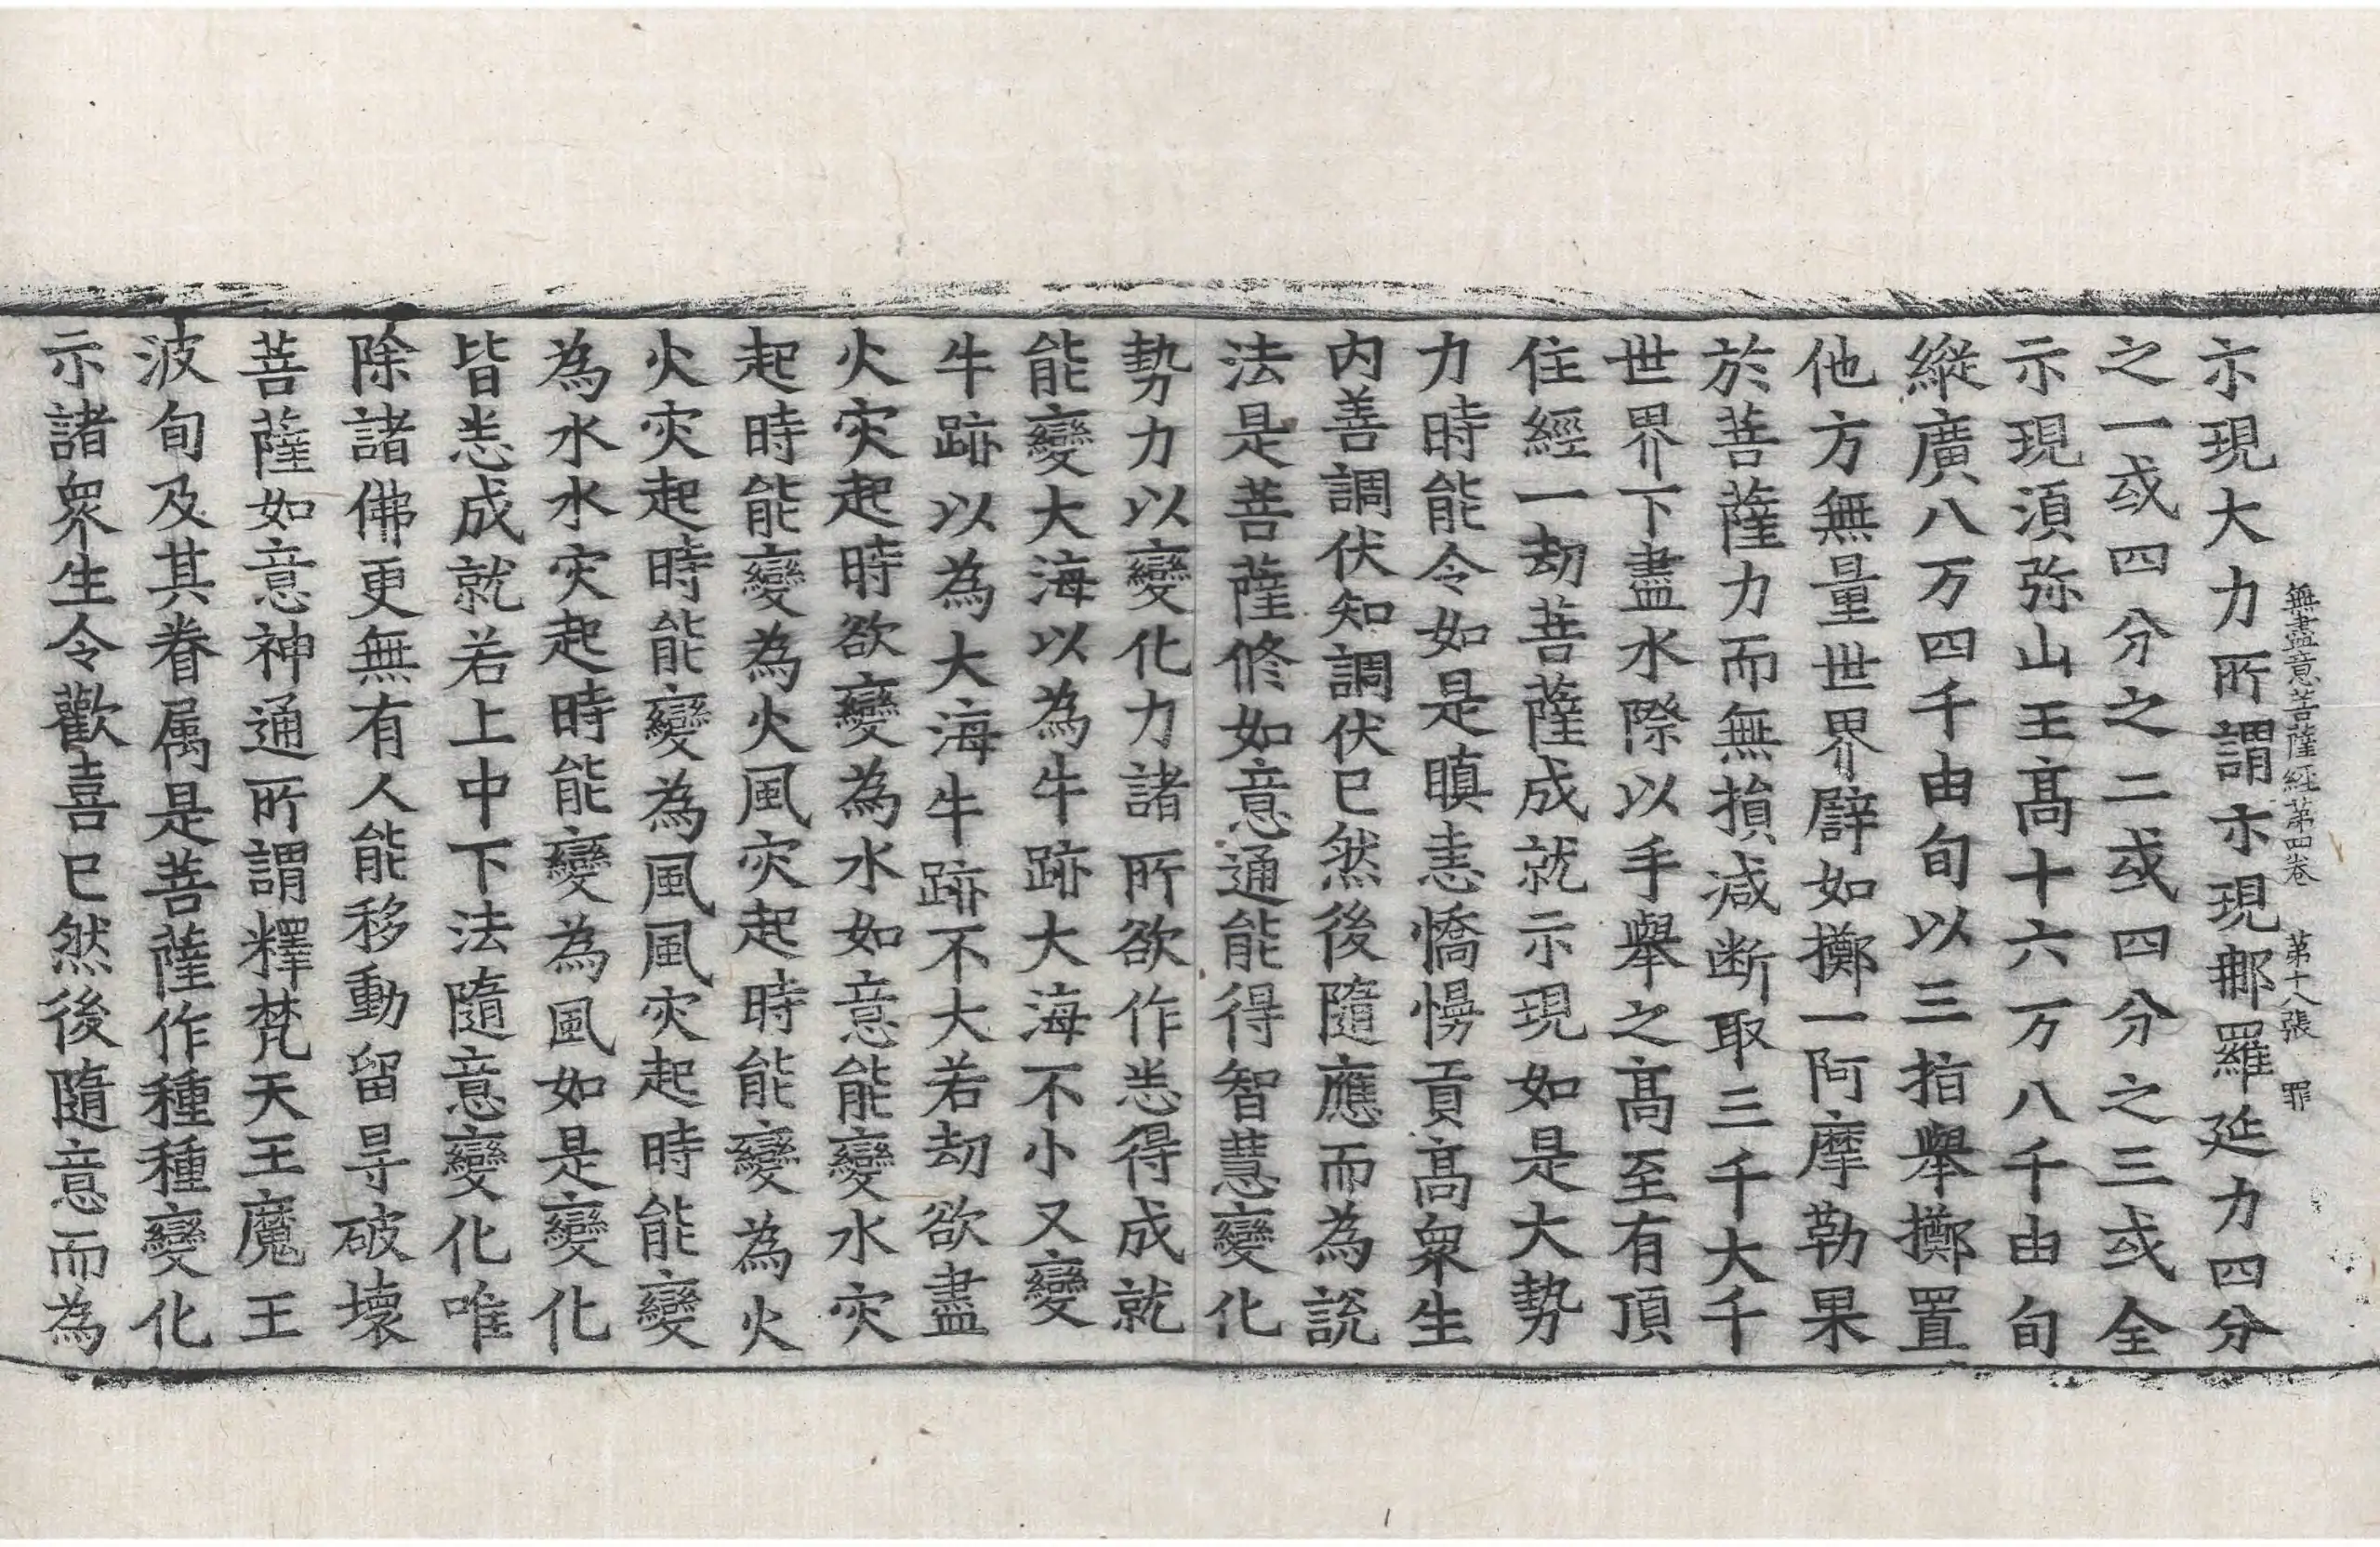 無盡意菩薩經第四卷 第十八張 罪
示現大力所謂示現那羅延力四分
之一或四分之二或四分之三或全
示現湏弥山王髙十六万八千由旬
縱廣八万四千由旬以三指舉擲置
他方無量世界譬如擲一阿摩勒果
於菩薩力而無損減断取三千大千
世界下盡水際以手舉之髙至有頂
住經一劫菩薩成就示現如是大勢
力時能令如是瞋恚憍慢貢髙衆生
内善調伏知調伏已然後隨應而為說
法是菩薩修如意通能得智慧變化
勢力以變化力諸所欲作悉得成就
能變大海以為牛跡大海不小又變
牛跡以為大海牛跡不大若劫欲盡
火灾起時欲變為水如意能變水灾
起時能變為火風灾起時能變為火
火灾起時能變為風風灾起時能變
為水水灾起時能變為風如是變化
皆悉成就若上中下法隨意變化唯
除諸佛更無有人能移動留㝵破壞
菩薩如意神通所謂釋梵天王魔王
波旬及其眷属是菩薩作種種變化
示諸衆生令歡喜已然後隨意而為